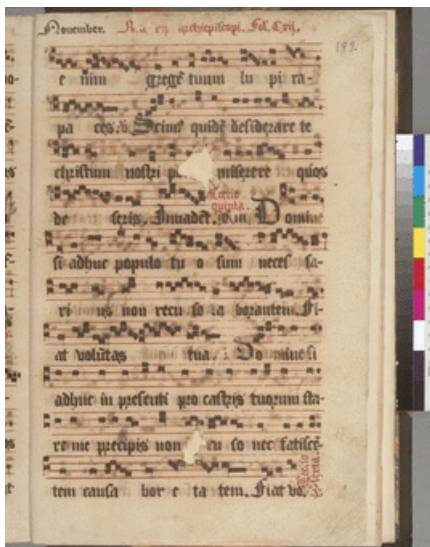 November. archiepiscopi. Fol. Cxij.
199.
e nim gregē tuum lu pi ra-
pa ces. Scimus quidē desiderare te
christum nostri miserere quos
Lectio
quinta.
de seris. Invadēt. Domine
si adhuc populo tu o sum neces sa-
ri us non recu so la borantem. Fi-
at volūtas tua. Do mine si
adhuc in presenti pro castris tuorum sta-
re me precipis non cu so nec fatiscē-
tem causa bor e ta tem. Fiat vo.
Lectio
sexta.